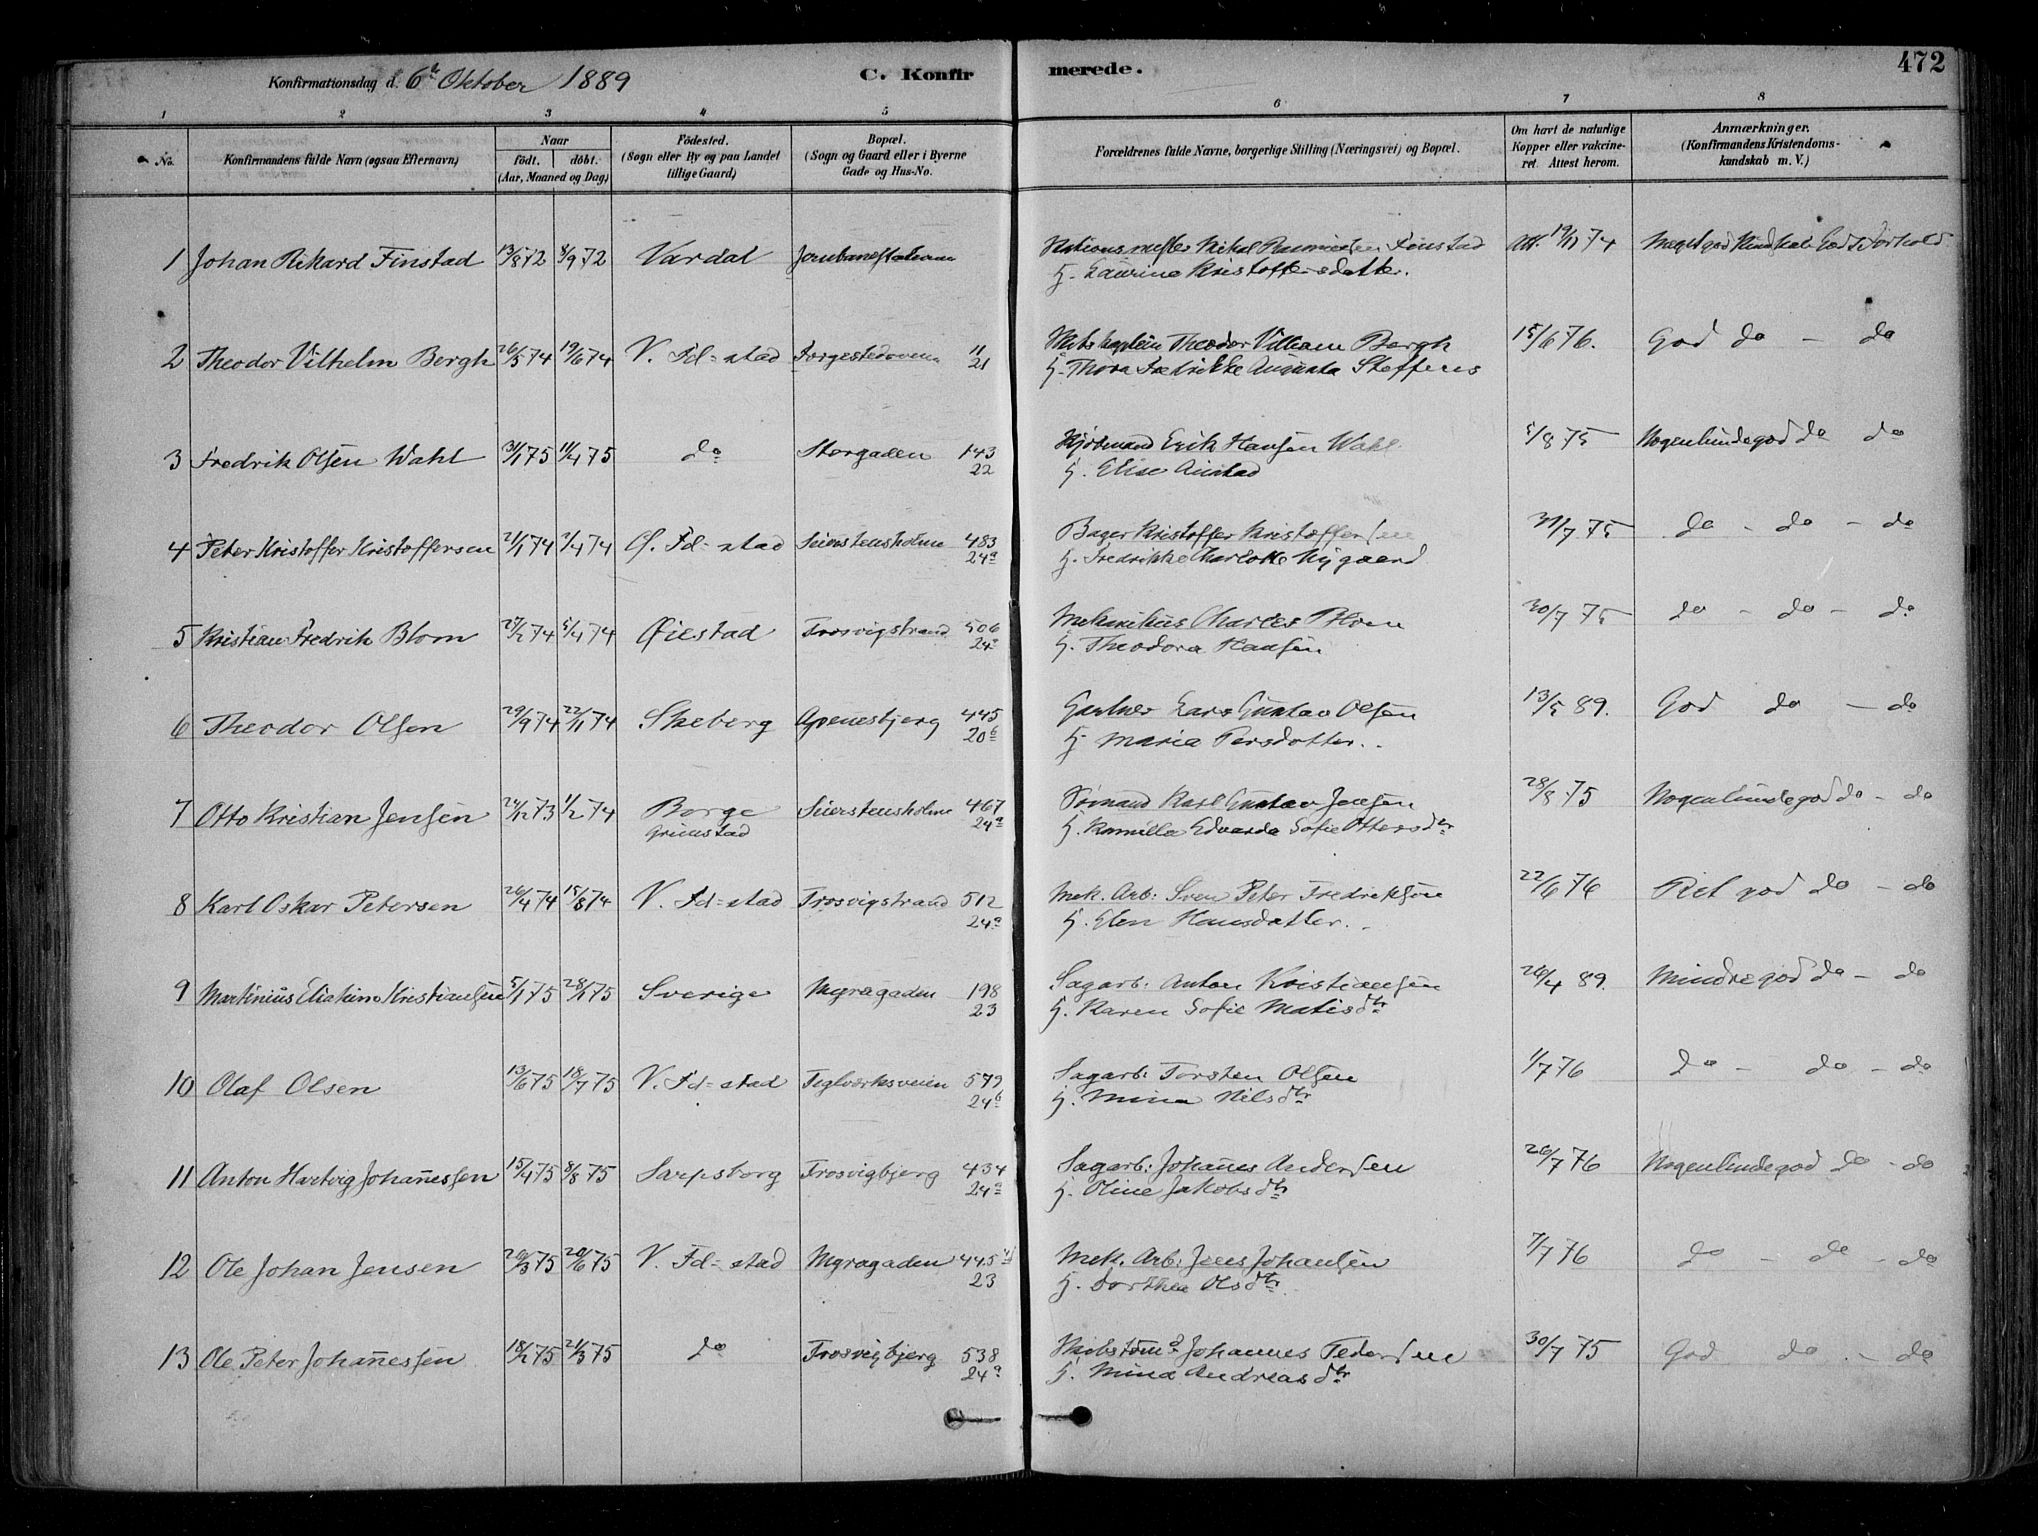 472
Konfirmationsdag d. 6te Oktober 1889 C. Konfirmerede.
1 2 3 4 5 6 7 8
No. Konfirmandens fulde Navn (ogsaa Efternavn) Naar født. døbt. (Aar, Maaned og Dag) Fødested. (Sogn eller By og paa Landet tillige Gaard) Bopæl. (Sogn og Gaard eller i Byerne Gade og Hus-No. Forældrenes fulde Navne, borgerlige Stilling (Næringsvei) og Bopæl. Om havt de naturlige Kopper eller vakcineret. Attest herom. Anmærkninger. (Konfirmandens Kristendomskundskab m. V.)
1 Johan Rikard Finstad 13/8 72 8/9 72 Vardal Jernbanestationen Finstad Att. 19/11 74 Meget god Kundskab God Forhold
G. Laurine Kristoffersdatter.
2 Theodor Vilhelm Bergh 26/3 74 19/6 74 V. Fd=stad Forgestedsveien 11 21 Theodor Villiam Bergh 15/6 76. God do - do
G. Thora Fredrikke Augusta Steffens
3 Fredrik Olsen Wahl 31/1 75 11/4 75 do Storgaden 143 22 Erik Hansen Wahl 5/8 75 Nogenlunde god do do
G. Elise Austad
4 Peter Kristoffer Kristoffersen 21/1 74 2/4 74 Ø. Fd=stad Seierstensholme 483 24a Bager Kristoffer Kristoffersen 31/7 75 do - do - do
G. Fredrikke Charlotte Nygaard
5 Kristian Fredrik Blom 27/2 74 5/4 74 Øiestad Trosvigstrand 506 24a Mekanikus Charles Blom 30/7 75 do - do - do
G. Theodora Hansen
6 Theodor Olsen 29/9 74 22/11 74 Skeberg Apenesbjerg 445 20b Gartner Lars Gustav Olsen 13/5 89. God do - do
G Maria Persdotter..
7 Otto Kristian Jensen 24/12 73 1/2 74 Borge Grimstad Seierstensholme 467 24a Sømand Karl Gustav Jensen 28/8 75 Nogenlunde god do - do
G. Kamilla Edvarda Sofie Ottersdtr
8 Karl Oskar Petersen 26/4 74 15/8 74 V. Fd=stad Trosvigstrand 512 24a Mek. Arb: Sven Peter Fredriksen 22/6 76 Ret god do - do
G. Elen Hansdatter.
9 Martinius Eliakim Kristiansen 5/1 75 28/1 75 Sverige Myragaden 198 23 Sagarb: Anton Kristiansen 26/4 89. Mindre god do - do
G. Karen Sofie Matisdtr
10 Olaf Olsen 13/6 75 18/7 75 V. Fd=stad Teglverksveien 579 24b Sagarb: Torsten Olsen 1/7 76 do - do - do
G. Mina Nilsdtr
11 Anton Hartvig Johannessen 15/4 75 8/8 75 Sarpsborg Trosvigbjerg 434 24a Sagarb: Johannes Andersen 26/7 76 Nogenlunde god do - do
G. Oline Jakobsdtr
12 Ole Johan Jensen 20/3 75 20/6 75 V. Fd=stad Myragaden 445 23 Mek. Arb: Jens Johansen 7/7 76 do - do - do
G. Dorthea Olsdtr
13 Ole Peter Johannessen 18/2 75 21/3 75 do Trosvigbjerg 538 24a Skibstømd Johannes Pedersen 30/7 75 God do - do
G. Mina Andreasdtr